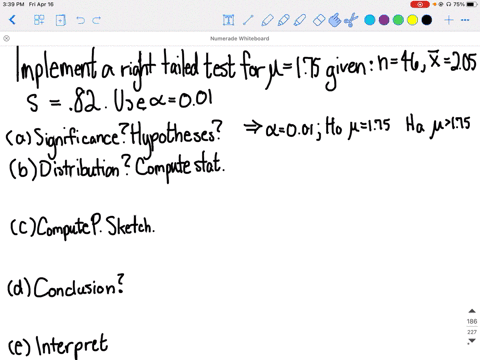 3:39 PM Fri Apr 16
75%
Numerade Whiteboard
Implement a right tailed test for μ=1.75 given: n=46, x̄=2.05
s = .82. Use α=0.01
(a) Significance? Hypotheses? ⇒ α=0.01; Ho μ=1.75 Ha μ>1.75
(b) Distribution? Compute stat.
(c) Compute P. Sketch.
(d) Conclusion?
(e) Interpret
186
227